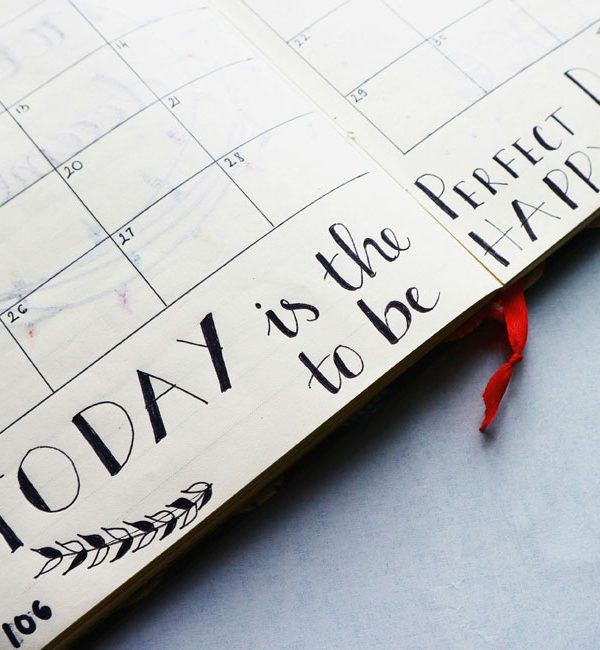 14
13
21
20
28
27
26
22
30
29
TODAY is the PERFECT
to be HAPPY
106